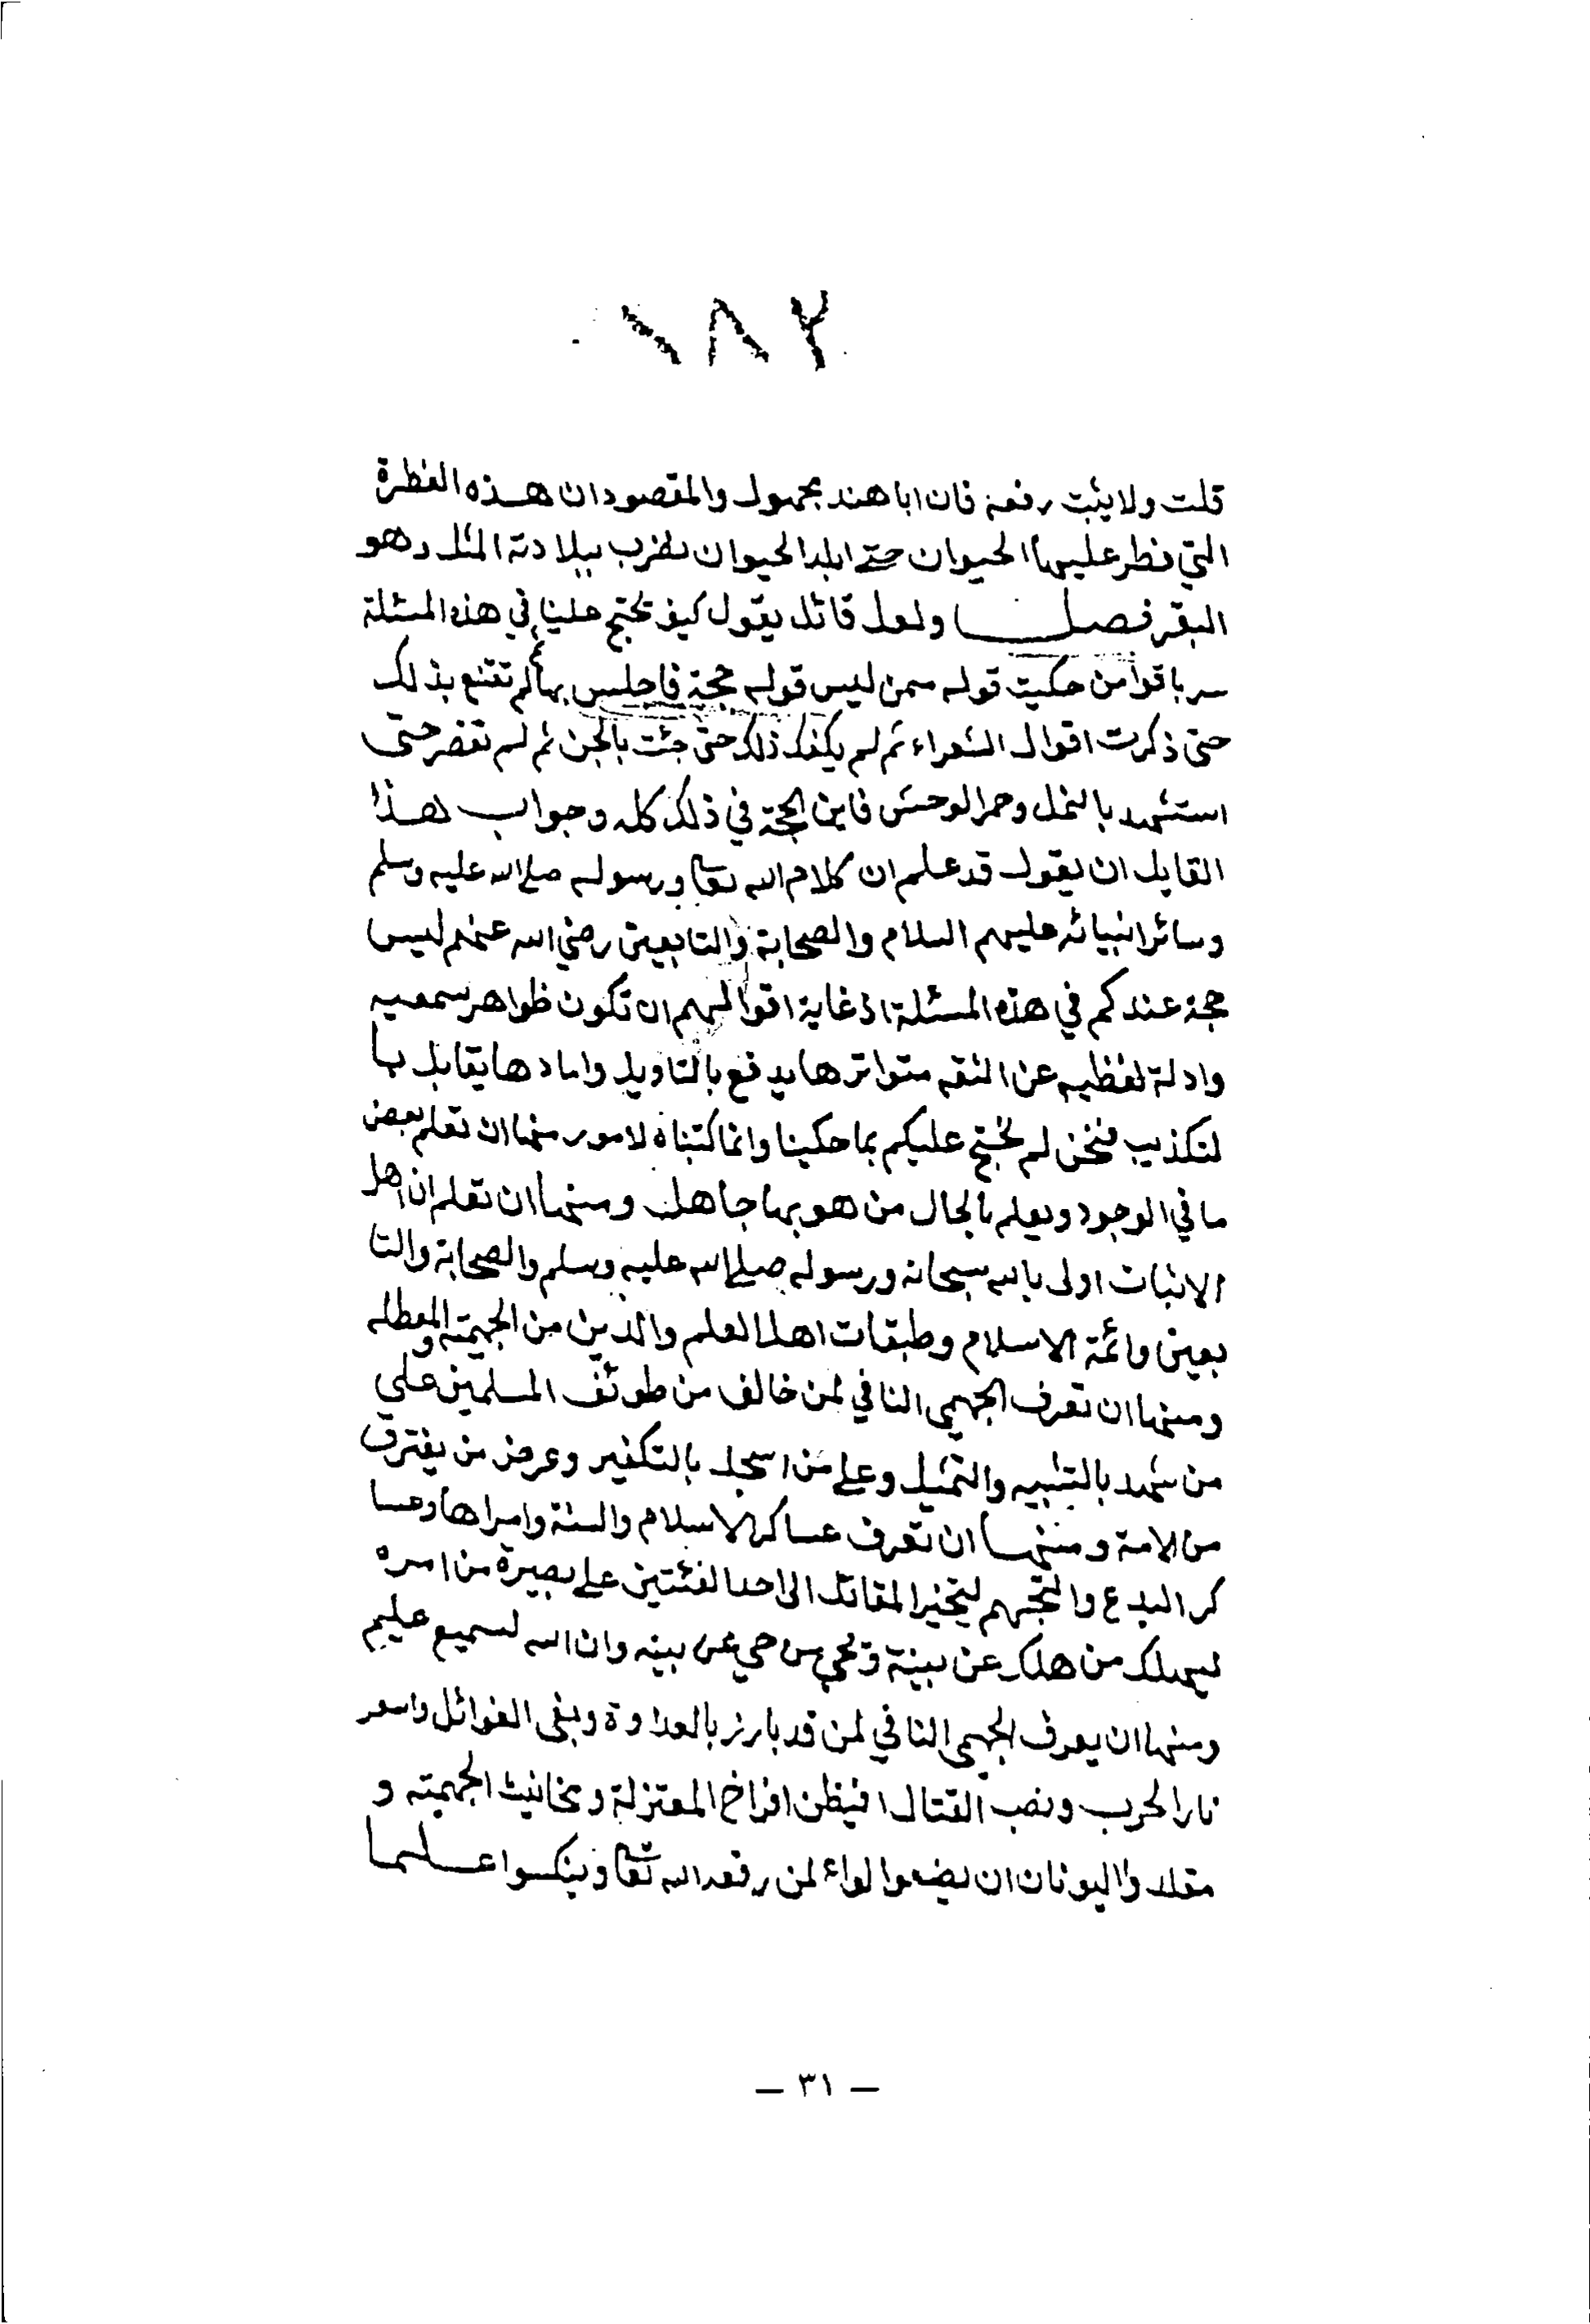 ١٨٢
قلت ولا يثبت رفعه فان ابا هند مجهول والمقصود ان هذه الفطرة
التي فطر عليها الحيوان حتى ابلد الحيوان يضرب ببلادته المثل وهو
البقر فصل ولعل قائل يقول كيف تحتج علينا في هذه المسئلة
باقوا من حكيت قوله ممن ليس قوله حجة فاجلس بها ثم لم تقنع بذلك
حتى ذكرت اقوال الشعراء ثم لم يكفك ذلك حتى جئت بالجن ثم لم تقصر حتى
استشهد بالنمل وحمر الوحش فاين الحجة في ذلك كله وجواب هذا
القايل ان يقول قد علم ان كلام الله تعالى ورسوله صلى الله عليه وسلم
وسائر انبيائه عليهم السلام والصحابة والتابعين رضي الله عنهم ليس
حجة عندكم في هذه المسئلة اذ غاية اقوالهم ان تكون ظواهر سمعيه
وادلة لفظيه عن الثقه متواترها يدفع بالتاويل واحادها يقابل با
لتكذيب فنحن لم نحتج عليكم بما حكينا وانما كتبناه لامور منها ان تعلم بعض
ما في الوجود ويعلم بالحال من هو بها جاهل ومنها ان تعلم ان اهل
الاثبات اولى بالله سبحانه ورسوله صلى الله عليه وسلم والصحابة والتا
بعين وائمة الاسلام وطبقات اهل العلم والدين من الجهمية والمعطله
ومنها ان تعرف الجهمي النافي لمن خالف من طوئف المسلمين علي
من شهد بالتشبيه والتمثيل وعلى من اسجل بالتكفير وعرض من يفترق
من الامة ومنها ان تعرف عساكر الاسلام والسنة وامراها وعسا
كر البدع والتجهم ليتحيز المقاتل الى احد الفئتين على بصيرة من امره
ليهلك من هلك عن بينة ويحي من حي عن بينه وان الله لسميع عليم
ومنها ان يعرف الجهمي النافي لمن قد بارز بالعداوة وبغى الغوائل واسعر
نار الحرب ونصب القتال افيظن افراخ المعتزلة ومخانيث الجهمية و
مقلدوا اليونان ان يضعوا لواء لمن رفعه الله تعالى وينكسوا علما
— ٣١ —